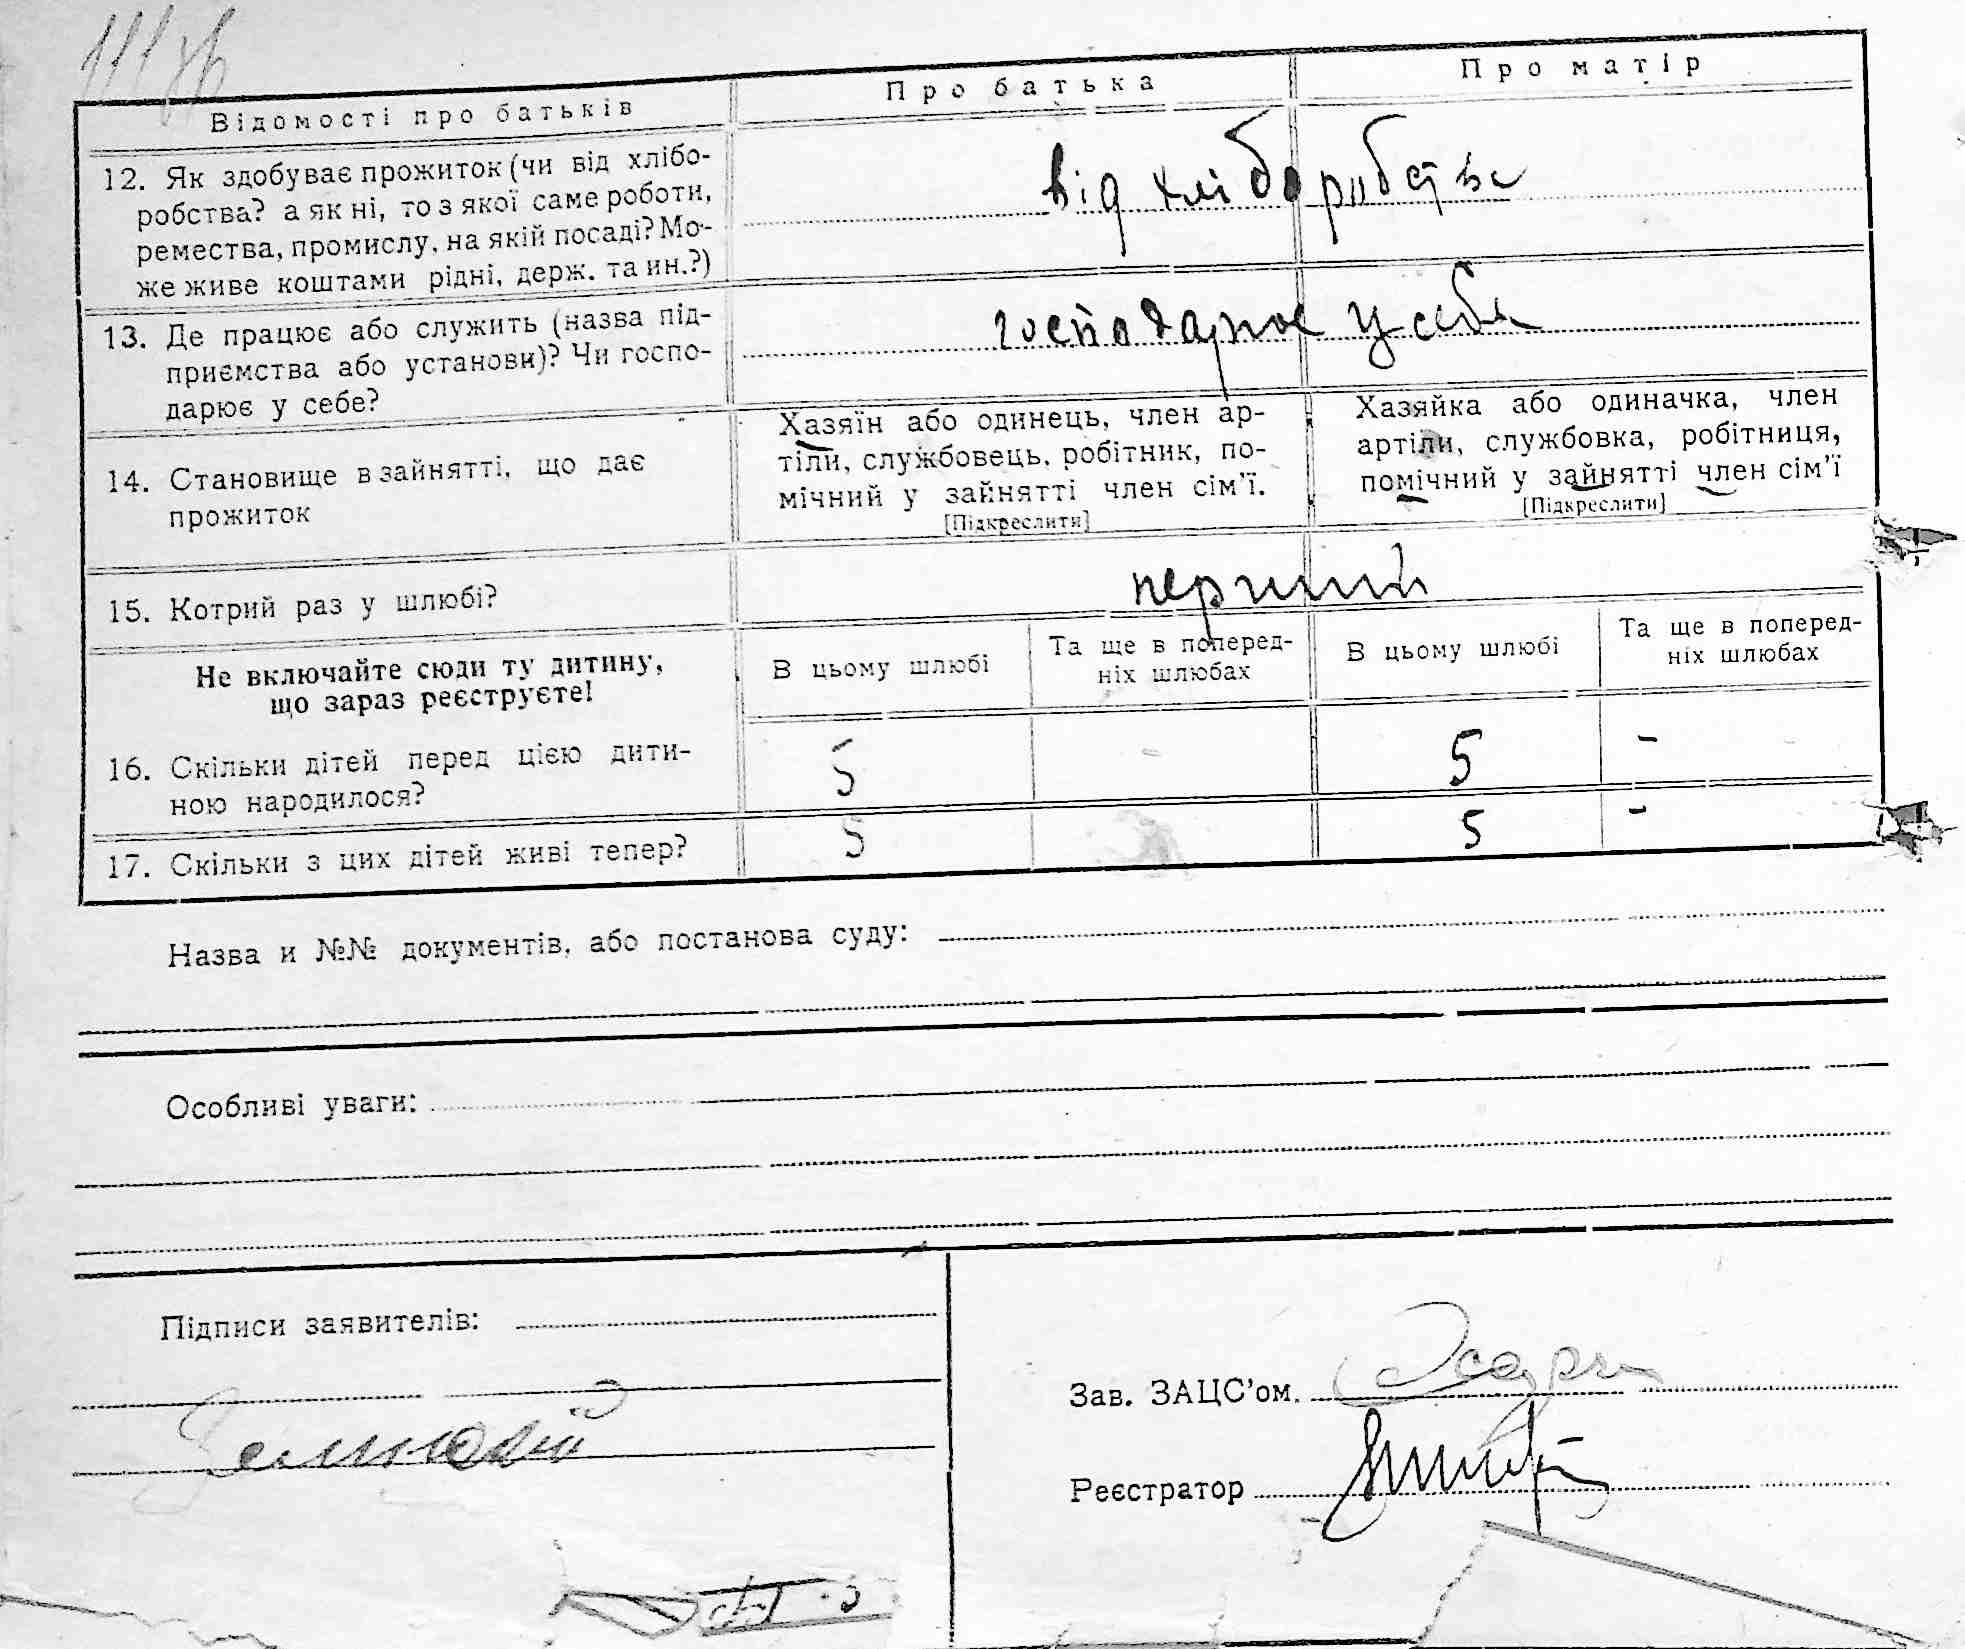 Відомості про батьків
Про батька
Про матір
12. Як здобуває прожиток (чи від хлібо-
робства? а як ні, то з якої саме роботи,
ремества, промислу, на якій посаді? Мо-
же живе коштами рідні, держ. та ин.?)
від хліборобства
13. Де працює або служить (назва під-
приємства або установи)? Чи госпо-
дарює у себе?
господарює у себе
14. Становище в зайнятті, що дає
прожиток
Хазяїн або одинець, член ар-
тіли, службовець, робітник, по-
мічний у зайнятті член сім'ї.
[Підкреслити]
Хазяйка або одиначка, член
артіли, службовка, робітниця,
помічний у зайнятті член сім'ї
[Підкреслити]
15. Котрий раз у шлюбі?
перший
Не включайте сюди ту дитину,
що зараз реєструєте!
В цьому шлюбі
Та ще в поперед-
ніх шлюбах
В цьому шлюбі
Та ще в поперед-
ніх шлюбах
16. Скільки дітей перед цією дити-
ною народилося?
5 - 5 -
17. Скільки з цих дітей живі тепер?
5 5 -
Назва и №№ документів, або постанова суду:
Особливі уваги:
Підписи заявителів:
Зав. ЗАЦС'ом.
Реєстратор